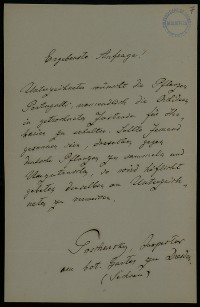 Ergebenste Anfrage!
Unterzeichneter wünscht die Pflanzen
Portugalls, namentlich die Orchideen
in getrocknetem Zustande für Her-
barien zu erhalten. Sollte Jemand
gesonnen sein, dieselben gegen
deutsche Pflanzen zu sammeln und
so wird höflichst
gebeten dieselben an Unterzeich-
neten zu
Inspector
am bot. Garten zu Dresden
(Sachsen)